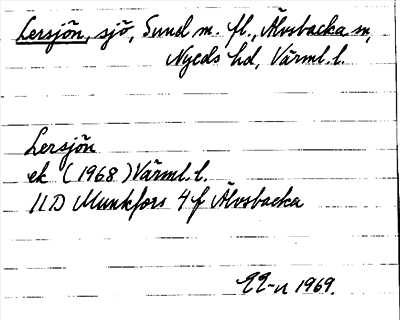 Lersjön, sjö, Sund m. fl., Älvsbacka sn,
Nyeds hd, Värml. l.
Lersjön
ek (1968) Värml. l.
11D Munkfors 4f Älvsbacka
1969.